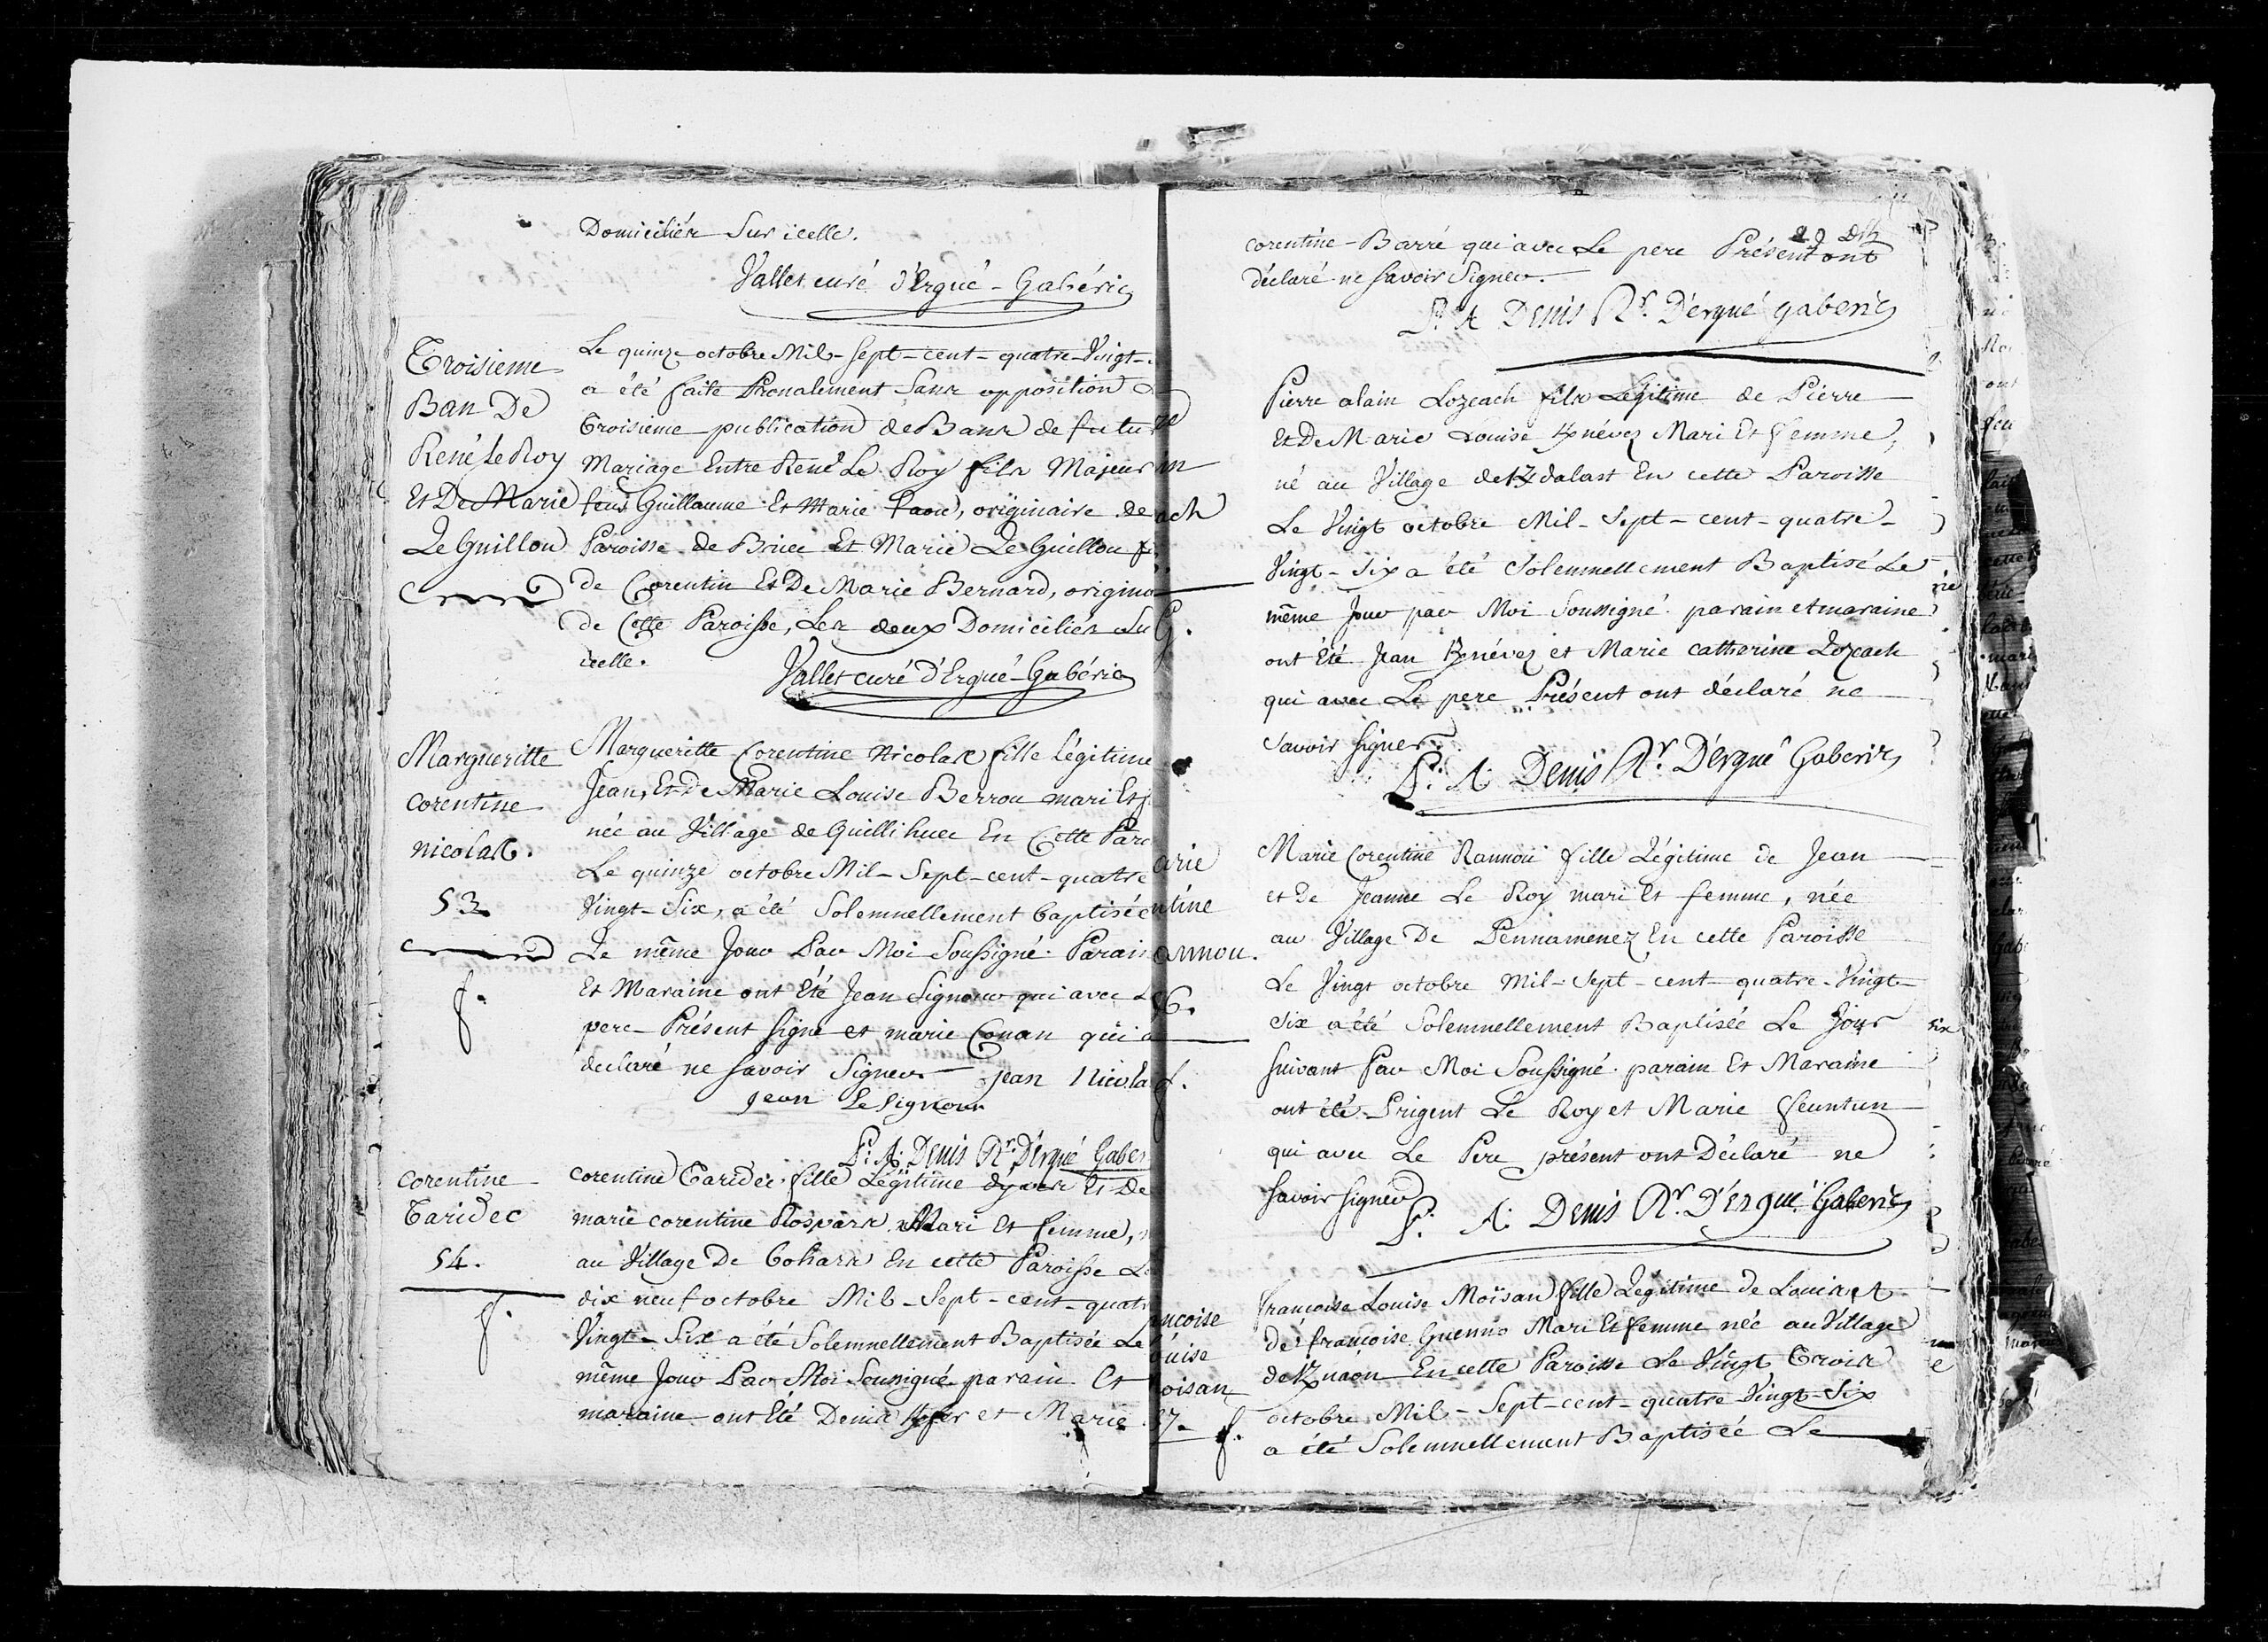 Domiciliés Sur icelle.
Vallet curé d'Ergué-Gabéric
Troisieme
Ban De
René Le Roy
Et De Marie
Le Guillou
Le quinze octobre Mil-Sept-cent-quatre-Vingt-
a été faite Pronalement Sans opposition
Troisieme publication de Bans de futur
Mariage Entre René Le Roy fils Majeur
feu Guillaume Et Marie faou, originaire de
Paroisse de Briec Et Marie Le Guillou
de Corentin Et De Marie Bernard, origina
de Cette Paroisse, Les deux Domiciliés Su
icelle.
Vallet curé d'Ergué-Gabéric
Margueritte
corentine
nicolas.
53
f.
Margueritte Corentine Nicolas fille légitime
Jean, Et De Marie Louise Berrou mari Et f
née au Village de Guillihuec En Cette Paro
Le quinze octobre Mil-Sept-cent-quatre
Vingt-Six, a été Solemnellement baptisée
Le même Jour Par Moi Soussigné. Parain
Et Maraine ont Eté Jean Signour qui avec Le
pere Présent signé et marie Conan qui a
declaré ne savoir Signer jean Nicola
jean Le Signour
P: A: Denis Rr. D'érgué Gaber
corentine
Taridec
54.
f.
corentine Taridec fille Légitime dyves Et De
marie corentine Rospars Mari Et femme,
au Village De bohars En cette Paroisse Le
dix neuf octobre Mil-Sept-cent-quatr
Vingt-Six a été Solemnellement Baptisée Le
même Jour Par Moi Soussigné. parain Et
maraine ont Eté Denis et Marie
29 Dix
corentine-Barré qui avec Le pere Présent ont
déclaré ne savoir Signer.
P. A Denis Rr. D'érgué gaberic
Pierre alain Lozeach fils Légitime de Pierre
Et De Marie Louise Kznévez Mari Et femme,
né au Village de Kdalast En cette Paroisse
Le Vingt octobre Mil-Sept-cent-quatre-
Vingt-Six a été Solemnellement Baptisé Le
même Jour par Moi Soussigné. parain et maraine
ont Eté Jean Kznévez et Marie catherine Lozeach
qui avec Le pere Présent ont déclaré ne
savoir signer.
P: A: Denis Rr. D'érgué Gaberic
arie
entine
annou.
56.
f.
Marie Corentine Rannou fille Légitime de Jean
et De Jeanne Le Roy mari Et femme, née
au Village De Pennamenez En cette Paroisse
Le Vingt octobre Mil-Sept-cent-quatre-Vingt-
Six a été Solemnellement Baptisée Le Jour
suivant Par Moi Soussigné. parain Et Maraine
ont été Prigent Le Roy et Marie feuntun
qui avec Le Pere présent ont Déclaré ne
savoir signer
P: A: Denis Rr. D'érgué Gaberic
ancoise
ouise
oisan
57.
f.
francoise Louise Moïsan fille Légitime de Louis et
de francoise Guenno Mari Et femme née au Village
de Kznaon En cette Paroisse Le Vingt Trois
octobre Mil-Sept-cent-quatre Vingt-Six
a été Solemnellement Baptisée Le